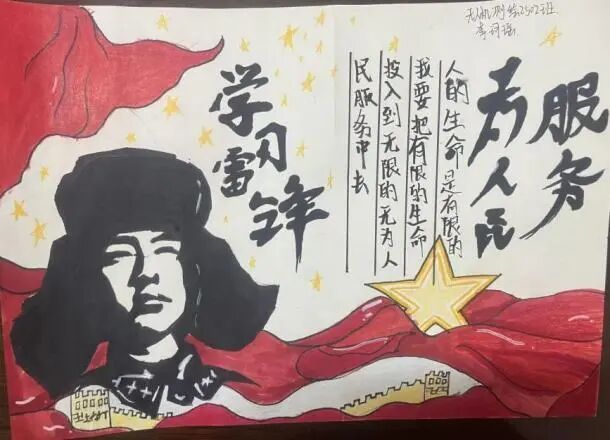 无人机测绘2502班
学习
雷锋
为人民
服务
人的生命是有限的
我要把有限的生命
投入到无限的无为人
民服务中去